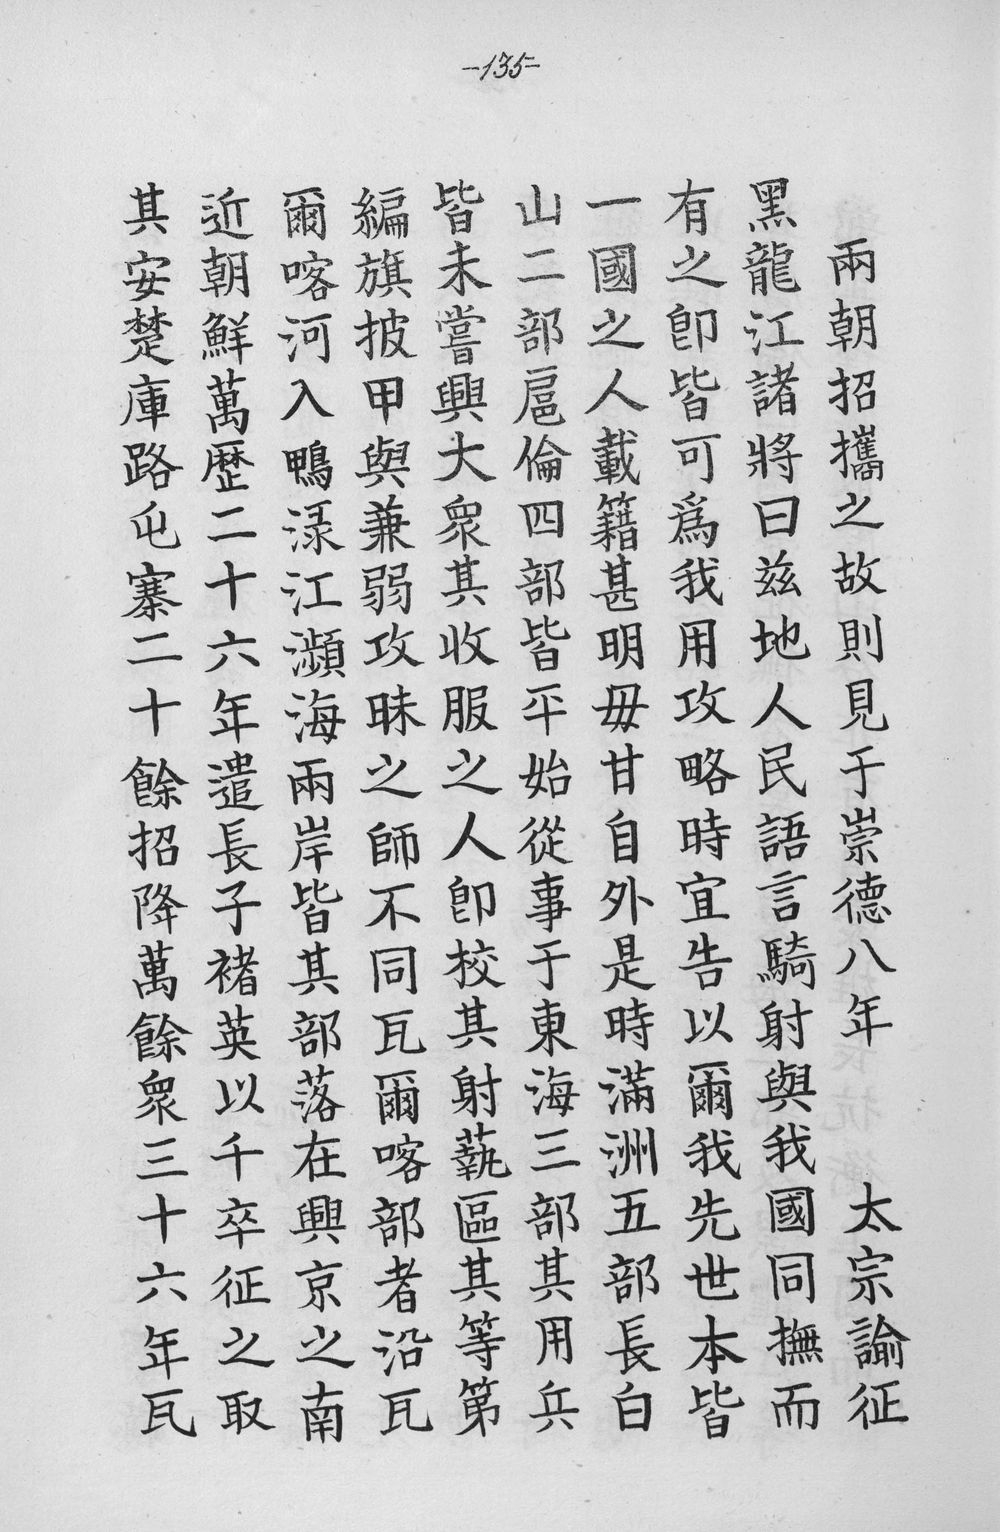 -135-
兩朝招攜之故則見于崇德八年　太宗諭征
黑龍江諸將曰茲地人民語言騎射與我國同撫而
有之卽皆可爲我用攻略時宜告以爾我先世本皆
一國之人載籍甚明毋甘自外是時滿洲五部長白
山二部扈倫四部皆平始從事于東海三部其用兵
皆未嘗興大衆其收服之人卽校其射藝區其等第
編旗披甲與兼弱攻昧之師不同瓦爾喀部者沿瓦
爾喀河入鴨淥江瀕海兩岸皆其部落在興京之南
近朝鮮萬歷二十六年遣長子褚英以千卒征之取
其安楚庫路屯寨二十餘招降萬餘衆三十六年瓦